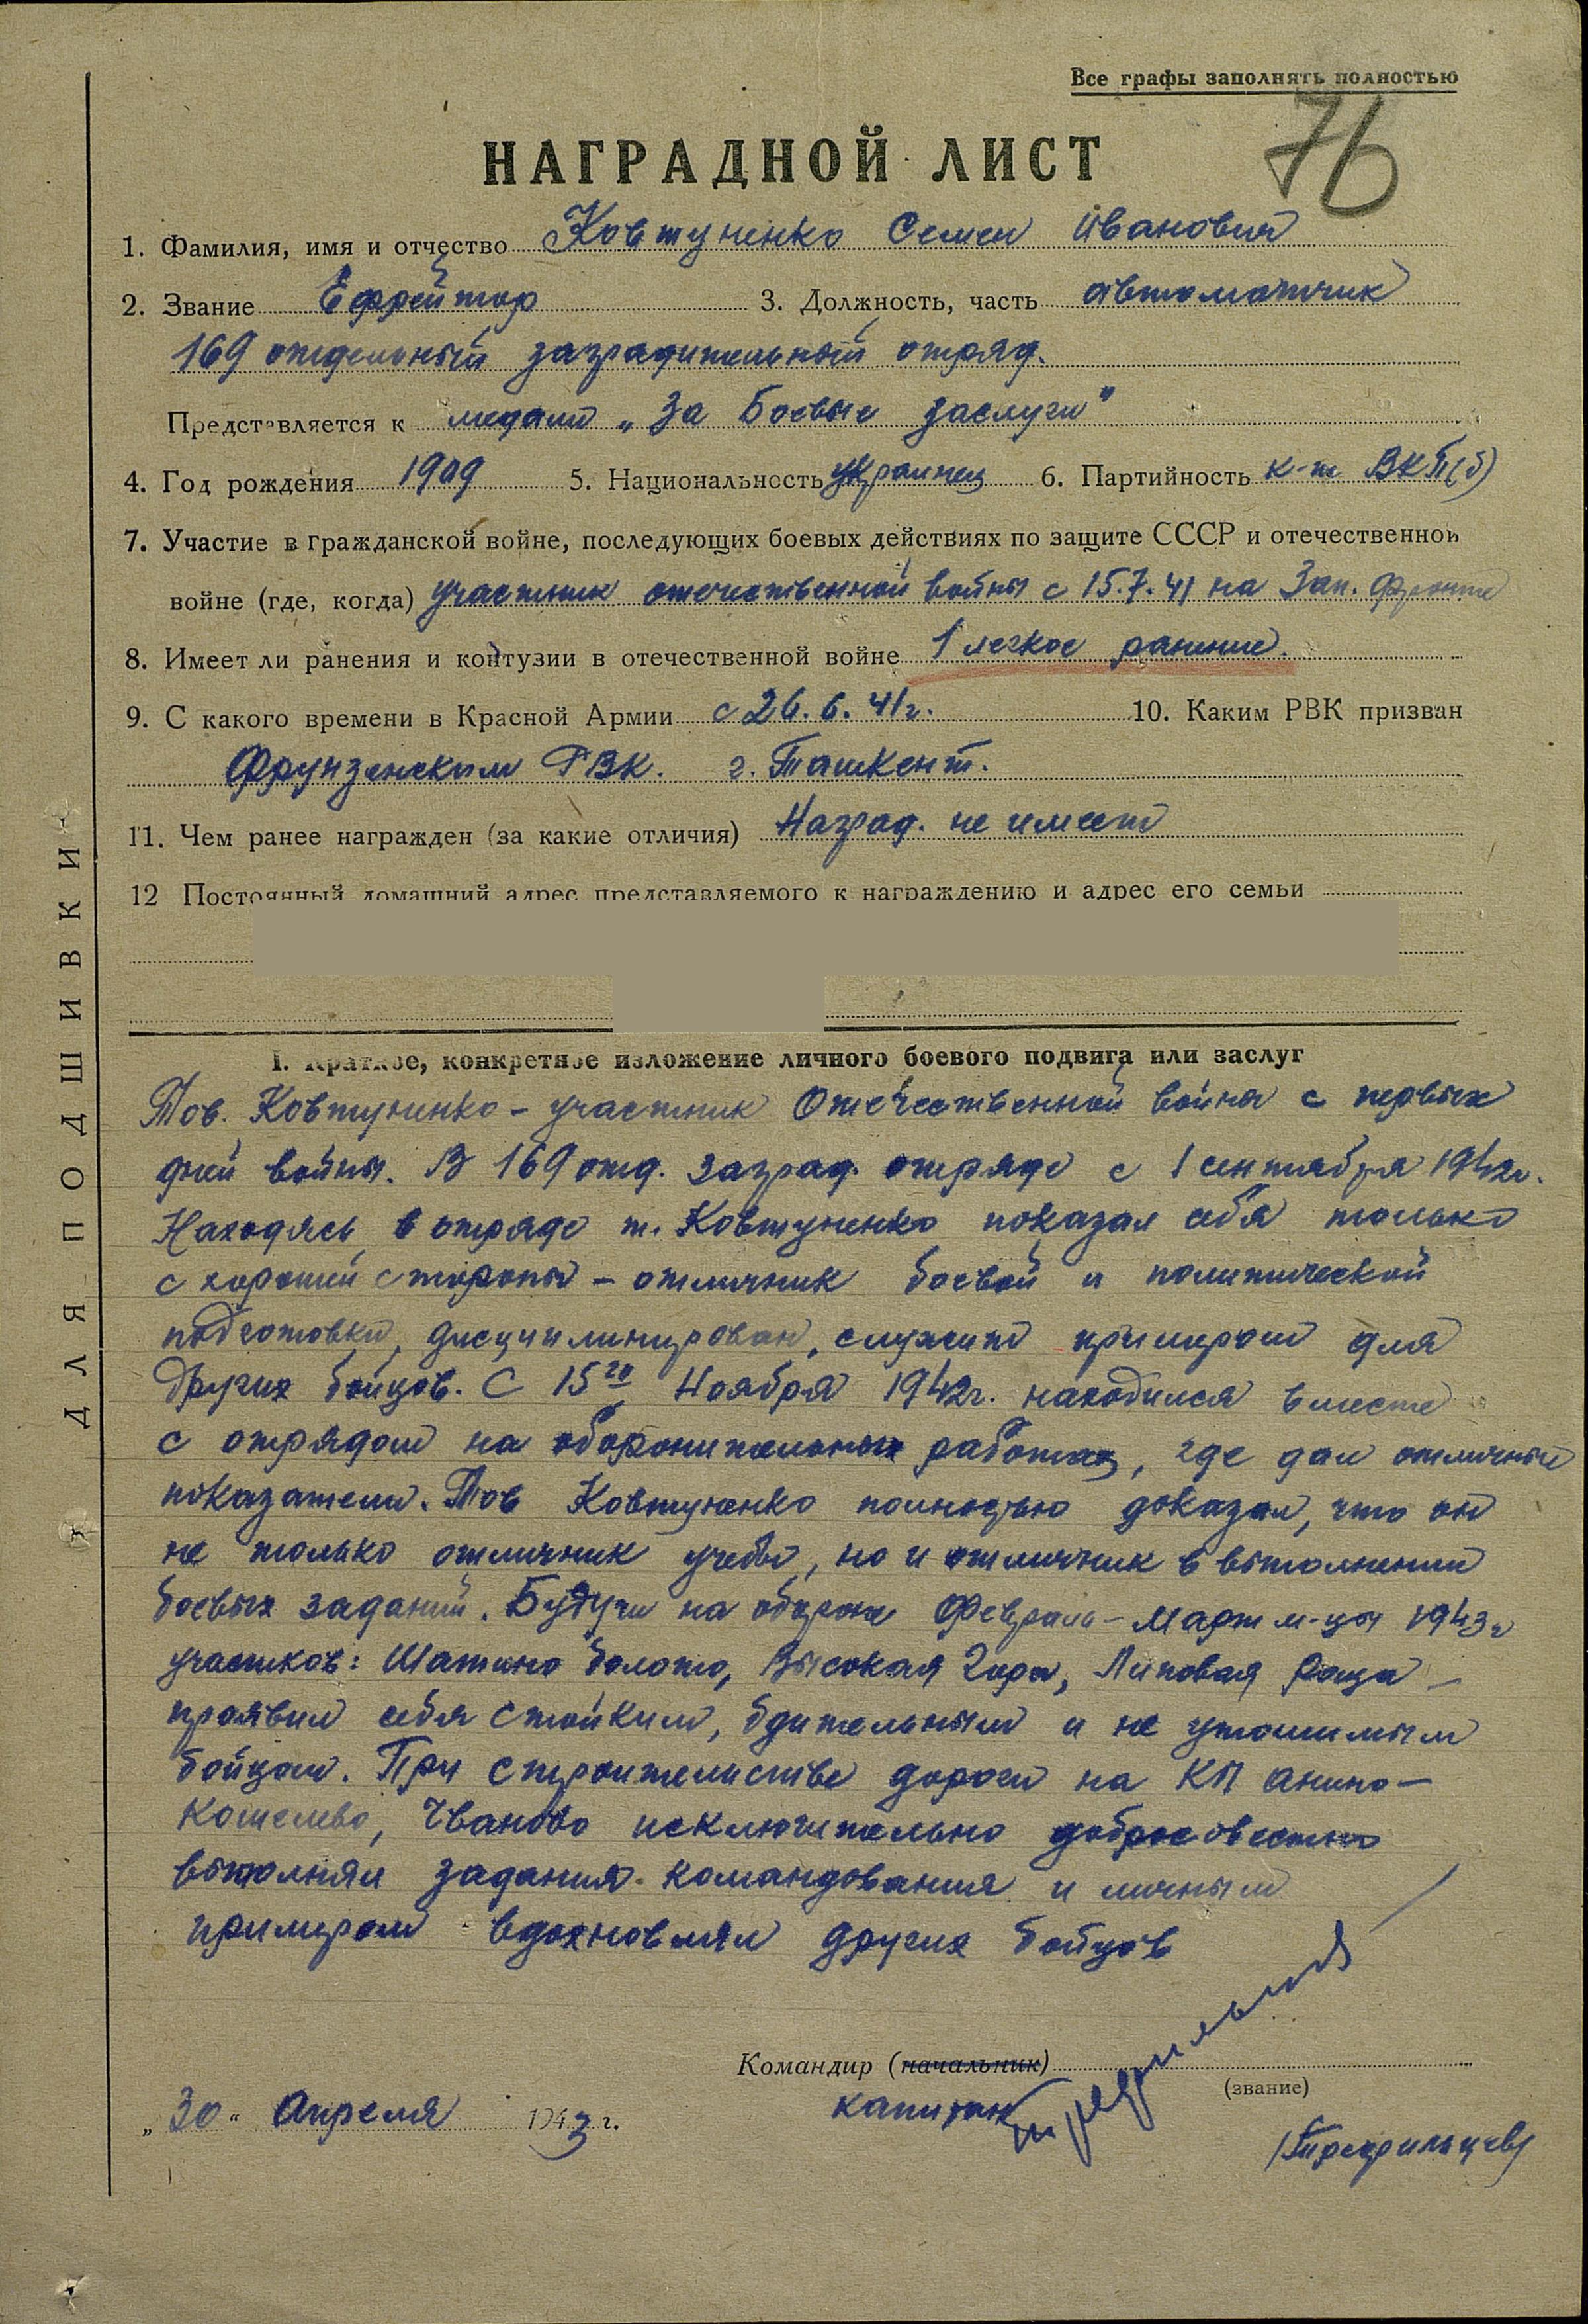 Все графы заполнять полностью
76
НАГРАДНОЙ ЛИСТ
1. Фамилия, имя и отчество Ковтуненко Семен Иванович
2. Звание Ефрейтор 3. Должность, часть автоматчик
169 отдельный заградительный отряд.
Представляется к медали „За Боевые заслуги"
4. Год рождения 1909 5. Национальность украинец 6. Партийность к-т ВКП(б)
7. Участие в гражданской войне, последующих боевых действиях по защите СССР и отечественной
войне (где, когда) участник отечественной войны с 15.7.41 на Зап. Фронте
8. Имеет ли ранения и контузии в отечественной войне 1 легкое ранение.
9. С какого времени в Красной Армии с 26.6.41г. 10. Каким РВК призван
Фрунзенским РВК. г. Ташкент.
11. Чем ранее награжден (за какие отличия) Наград. не имеет
12 Постоянный домашний адрес представляемого к награждению и адрес его семьи
I. Краткое, конкретное изложение личного боевого подвига или заслуг
Тов. Ковтуненко – участник Отечественной война с первых
дней войны. В 169 отд. заград. отряде с 1 сентября 1942г.
Находясь в отряде т. Ковтуненко показал себя только
с хорошей стороны – отличник боевой и политической
подготовки, дисциплинирован, служит примером для
Других бойцов. С 15го Ноября 1942г. находился вместе
с отрядом на оборонительных работах, где дал отличный
показатели. Тов Ковтуненко полностью доказал, что он
не только отличник учебы, но и отличник в выполнении
боевых заданий. Будучи на обороне Февраль – Март м-цы 1943г
участков: Шатино болото, Высокая Гора, Липовая роща –
проявил себя стойким, бдительным и не утомимым
бойцом. При строительстве дороги на КП Анино–
Кошелево, Иваново исключительно добросовестно
выполнял задания командования и личным
примером вдохновлял других бойцов
Командир (начальник)
(звание)
капитан
„30" Апреля 1943 г.
ДЛЯ ПОДШИВКИ